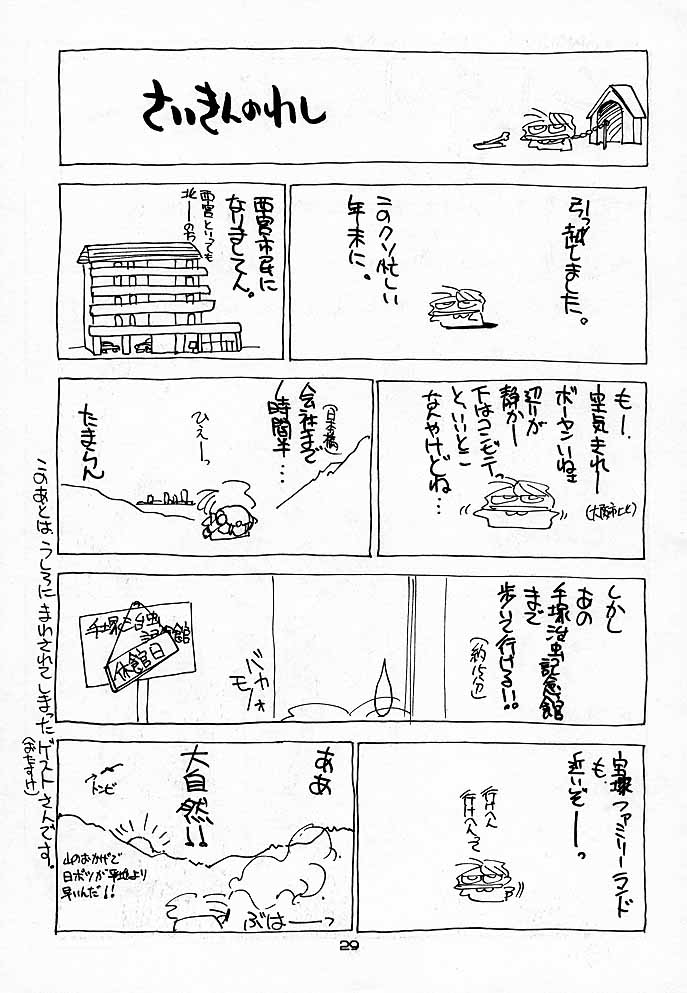 さいきんのわし
引っ越しました。
このクソ忙しい
年末に。
西宮市民に
なりましてん。
西宮といっても
北ーのち
もー、
空気きれー
(大阪市比)
ボーヤンいねェ
辺りが
静かー
下はコンビニっ
と、いいとこ
なんやけどね…
会社まで
(日本橋)
1時間半…
ひえーっ
たまらん
しかし
あの
手塚治虫記念館
まで
歩いて行ける!!
(約15分)
バカ
モノォ
手塚治虫
記念館
休館日
宝塚ファミリーランド
も
近いぞーっ
行けへん
行けへんって
ああ
大自然!!
トンビ
山のおかげで
日ボツが平地より
早いんだ!!
ぶはーーっ
このあとは、うしろにまわされてしまったゲストさんです。
(おたすけ)
29